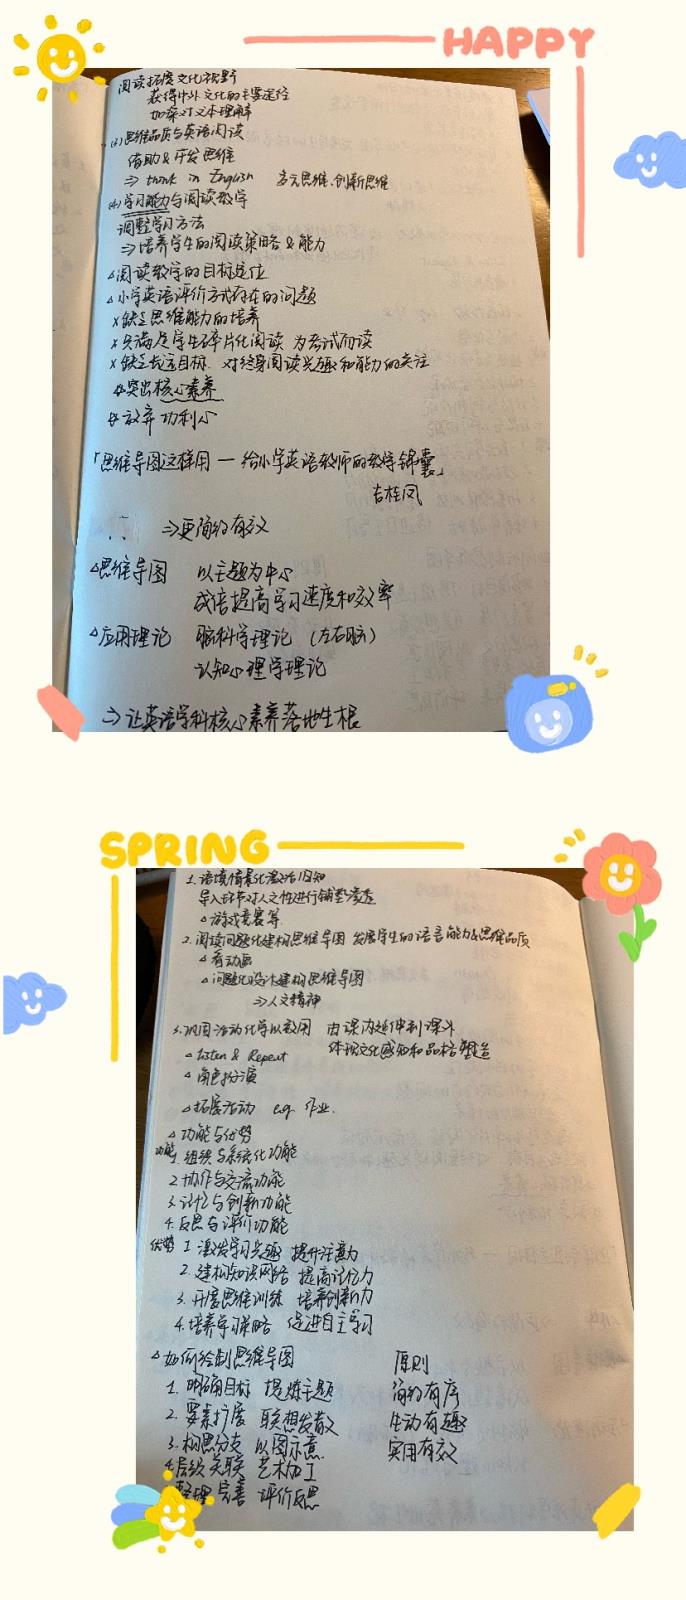 HAPPY
阅读拓展文化视野
获得中外文化的主要途径
加深对文本理解
(3)思维品质与英语阅读
借助&开发思维
⇒ think in English 多元思维、创新思维
(4)学习能力与阅读教学
调整学习方法
⇒培养学生的阅读策略&能力
△阅读教学的目标定位
△小学英语评价方式存在的问题
×缺乏思维能力的培养
×只满足学生碎片化阅读 为考试而读
×缺乏长远目标 对终身阅读兴趣和能力的关注
突出核心素养
放弃功利心
「思维导图这样用 — 给小学英语教师的教学锦囊」
吉桂凤
⇒更简约有效
△思维导图 以主题为中心
成倍提高学习速度和效率
△应用理论 脑科学理论 (左右脑)
认知心理学理论
⇒让英语学科核心素养落地生根
SPRING
1. 语境情景化激活旧知
导入环节对人文性进行铺垫渗透
△游戏竞赛等
2. 阅读问题化建构思维导图 发展学生的语言能力&思维品质
△看动画
△问题化设计建构思维导图
⇒人文精神
3. 巩固活动化学以致用 由课内延伸到课外
△Listen & Repeat 体现文化感知和品格塑造
△角色扮演
△拓展活动 e.g. 作业.
△功能与优势
功能 1. 组织与系统化功能
2. 协作与交流功能
3. 记忆与创新功能
4. 反思与评价功能
优势 1. 激发学习兴趣 提升注意力
2. 建构知识网络 提高记忆力
3. 开展思维训练 培养创新力
4. 培养学习策略 促进自主学习
△如何绘制思维导图 原则
1. 明确目标 提炼主题 简约有序
2. 要素扩展 联想发散 生动有趣
3. 构思分支 以图示意 实用有效
4. 层级关联 艺术加工
整理完善 评价反思